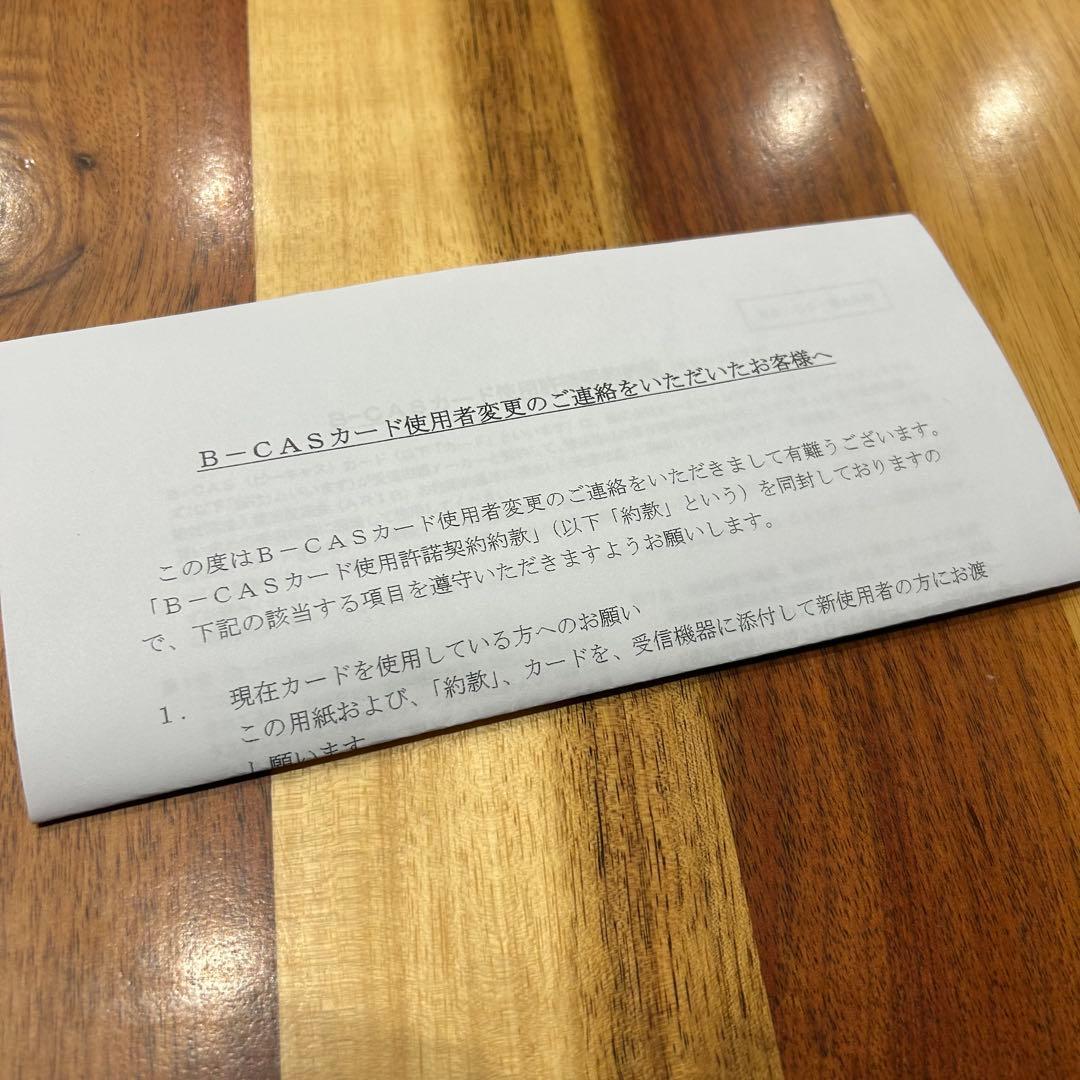 B－CASカード使用者変更のご連絡をいただいたお客様へ
この度はB－CASカード使用者変更のご連絡をいただきまして有難うございます。
「B－CASカード使用許諾契約約款」（以下「約款」という）を同封しておりますの
で、下記の該当する項目を遵守いただきますようお願いします。
1．　現在カードを使用している方へのお願い
この用紙および、「約款」、カードを、受信機器に添付して新使用者の方にお渡
し願います